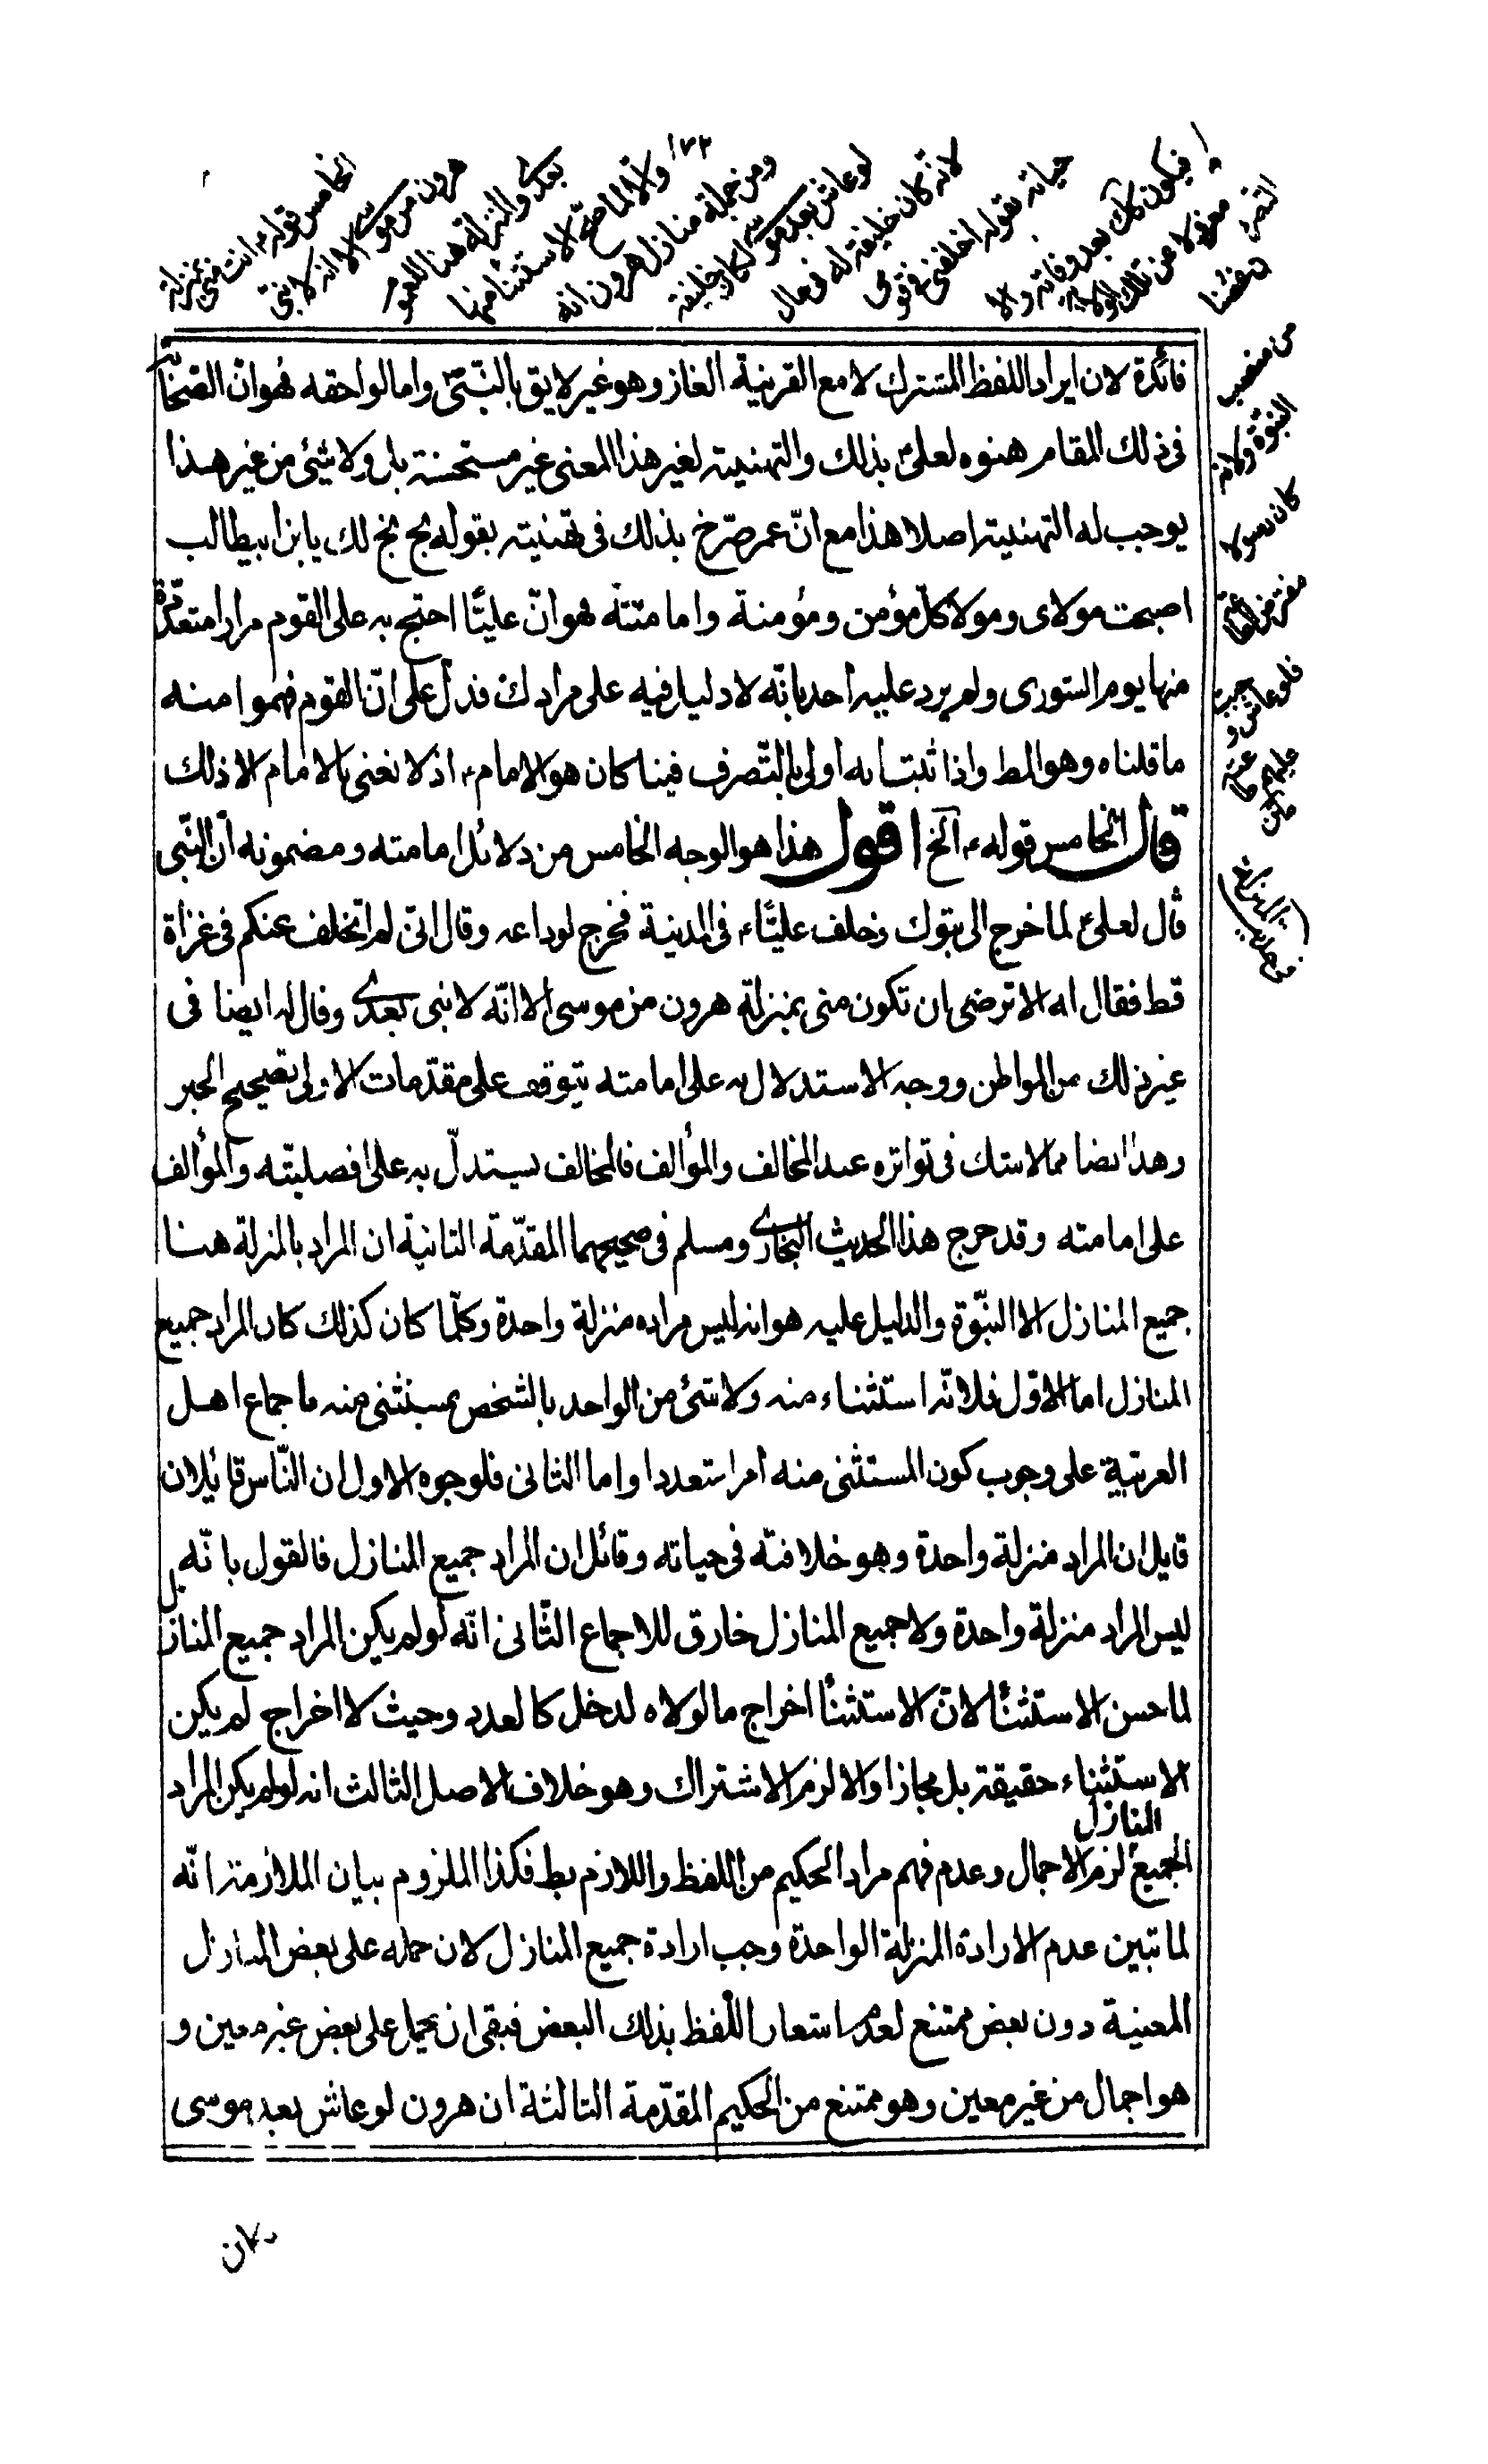 ١٧٢
الخامس قوله انت مني بمنزلة
هرون من موسى الا انه لا نبي
بعدي والمنزلة هنا للعموم
والا لما صح الاستثناء منها
ومن جملة منازل هرون انه
لو عاش بعد موسى لكان خليفة
لانه كان خليفة له في حال
حياته بقوله اخلفني في قومي
فيكون كك بعد وفاته والا
معزولا من تلك الولاية
من منصب
النبوة ولانه
كان رسولا
فائدة لان ايراد اللفظ المشترك لا مع القرينية الغاز وهو غير لايق بالنبي وامالواحقه فهو انّ الصحابة
في ذلك المقام هنوه لعلي بذلك والتهنية لغير هذا المعنى غير مستحسنة بل ولا شئ من غير هذا
يوجب له التهنية اصلا هذا مع انّ عمر صرّح بذلك في تهنيته بقوله بخ بخ لك يا بن ابيطالب
اصبحت مولاى ومولا كل مؤمن ومؤمنة واما متنه فهو انّ عليًّا احتج به على القوم مرارا متعدّدة
منها يوم الشورى ولم يرد عليه احد بانّه لا دليل فيه على مرادك فدل على انّ القوم فهموا منه
ما قلناه وهو المط واذا ثبت انه اولى بالتّصرف فينا كان هو الامام اذ لا نعنى بالامام الا ذلك
قال الخامس قوله الخ اقول هذا هو الوجه الخامس من دلائل امامته ومضمونه ان النّبى
قال لعلى لما خرج الى تبوك وخلف عليّا في المدينة فخرج لوداعه وقال انّى لم اتخلف عنكم في غزاة
قط فقال له الا ترضى ان تكون منى بمنزلة هرون من موسى الا انّه لا نبى بعدى وقال له ايضا في
غير ذلك من المواطن ووجه الاستدلال به على امامته يتوقف على مقدّمات الاولى تصحيح الخبر
وهذا ايضا مما لا شك في تواتره عند المخالف والمؤالف فالمخالف يستدلّ به على افضليّته والمؤالف
على امامته وقد خرج هذا الحديث البخارى ومسلم في صحيحهما المقدّمة الثانية ان المراد بالمنزلة هنا
جميع المنازل الا النبّوة والدليل عليه هو انه ليس مراده منزلة واحدة وكلّما كان كذلك كان المراد جميع
المنازل اما الاوّل فلانّه استثناء منه ولا شئ من الواحد بالشخص يستثنى منه باجماع اهل
العربيّة على وجوب كون المستثنى منه امرا متعددا واما الثانى فلوجوه الاول ان النّاس قائلان
قايل ان المراد منزلة واحدة وهو خلافته في حياته وقائل ان المراد جميع المنازل فالقول بانّه
ليس المراد منزلة واحدة ولا جميع المنازل خارق للاجماع الثّانى انّه لو لم يكن المراد جميع المنازل
لما حسن الاستثناء لانّ الاستثناء اخراج ما لولاه لدخل كالعدد وحيث لا اخراج لم يكن
الاستثناء حقيقة بل مجازا والا لزم الاشتراك وهو خلاف الاصل الثالث انه لو لم يكن المراد
المنازل
الجميع لزم الاجمال وعدم فهم مراد الحكيم من اللفظ واللازم بط فكذا الملزوم بيان الملازمة انّه
لما تبين عدم الارادة المنزلة الواحدة وجب ارادة جميع المنازل لان حمله على بعض المنازل
المعنية دون بعض ممتنع لعدم اشعار اللّفظ بذلك البعض فبقى ان يحمل على بعض غير معين و
هو اجمال من غير معين وهو ممتنع من الحكيم المقدّمة الثالثة ان هرون لو عاش بعد موسى